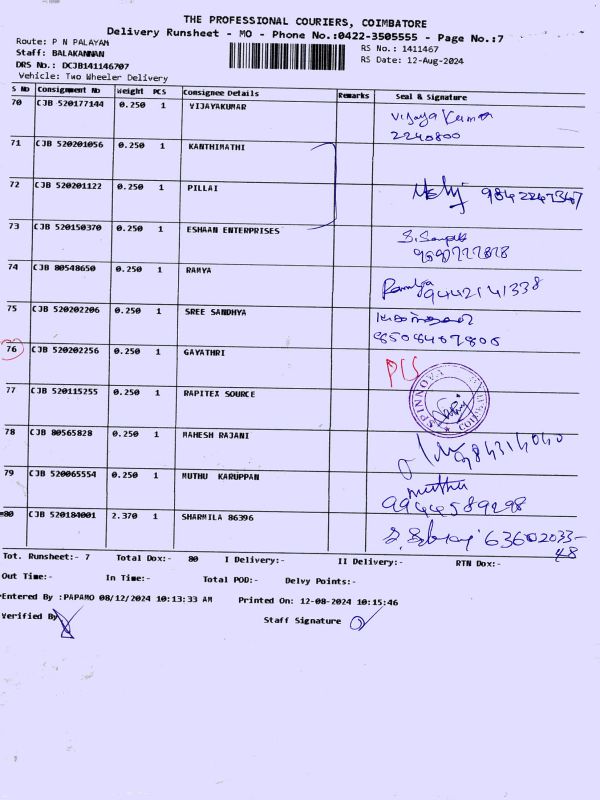 THE PROFESSIONAL COURIERS, COIMBATORE
Delivery Runsheet - MO - Phone No.:0422-3505555 - Page No.:7
Route: P N PALAYAM
RS No.: 1411467
Staff: BALAKANNAN
RS Date: 12-Aug-2024
DRS No.: DCJB141146707
Vehicle: Two Wheeler Delivery
S No Consignment No Weight PCS Consignee Details Remarks Seal & Signature
70 CJB 520177144 0.250 1 VIJAYAKUMAR Vijaya Kumar
2240800
71 CJB 520201056 0.250 1 KANTHIMATHI
72 CJB 520201122 0.250 1 PILLAI
73 CJB 520150370 0.250 1 ESHAAN ENTERPRISES
74 CJB 80548650 0.250 1 RAMYA Ramya 9442141338
75 CJB 520202206 0.250 1 SREE SANDHYA
76 CJB 520202256 0.250 1 GAYATHRI
77 CJB 520115255 0.250 1 RAPITEX SOURCE SPINNOVA
78 CJB 80565828 0.250 1 MAHESH RAJANI
79 CJB 520065554 0.250 1 MUTHU KARUPPAN muthu
9944589298
80 CJB 520184001 2.370 1 SHARMILA 86396 63602033-
48
Tot. Runsheet:- 7 Total Dox:- 80 I Delivery:- II Delivery:- RTN Dox:-
Out Time:- In Time:- Total POD:- Delvy Points:-
Entered By :PAPAMO 08/12/2024 10:13:33 AM Printed On: 12-08-2024 10:15:46
Verified By Staff Signature